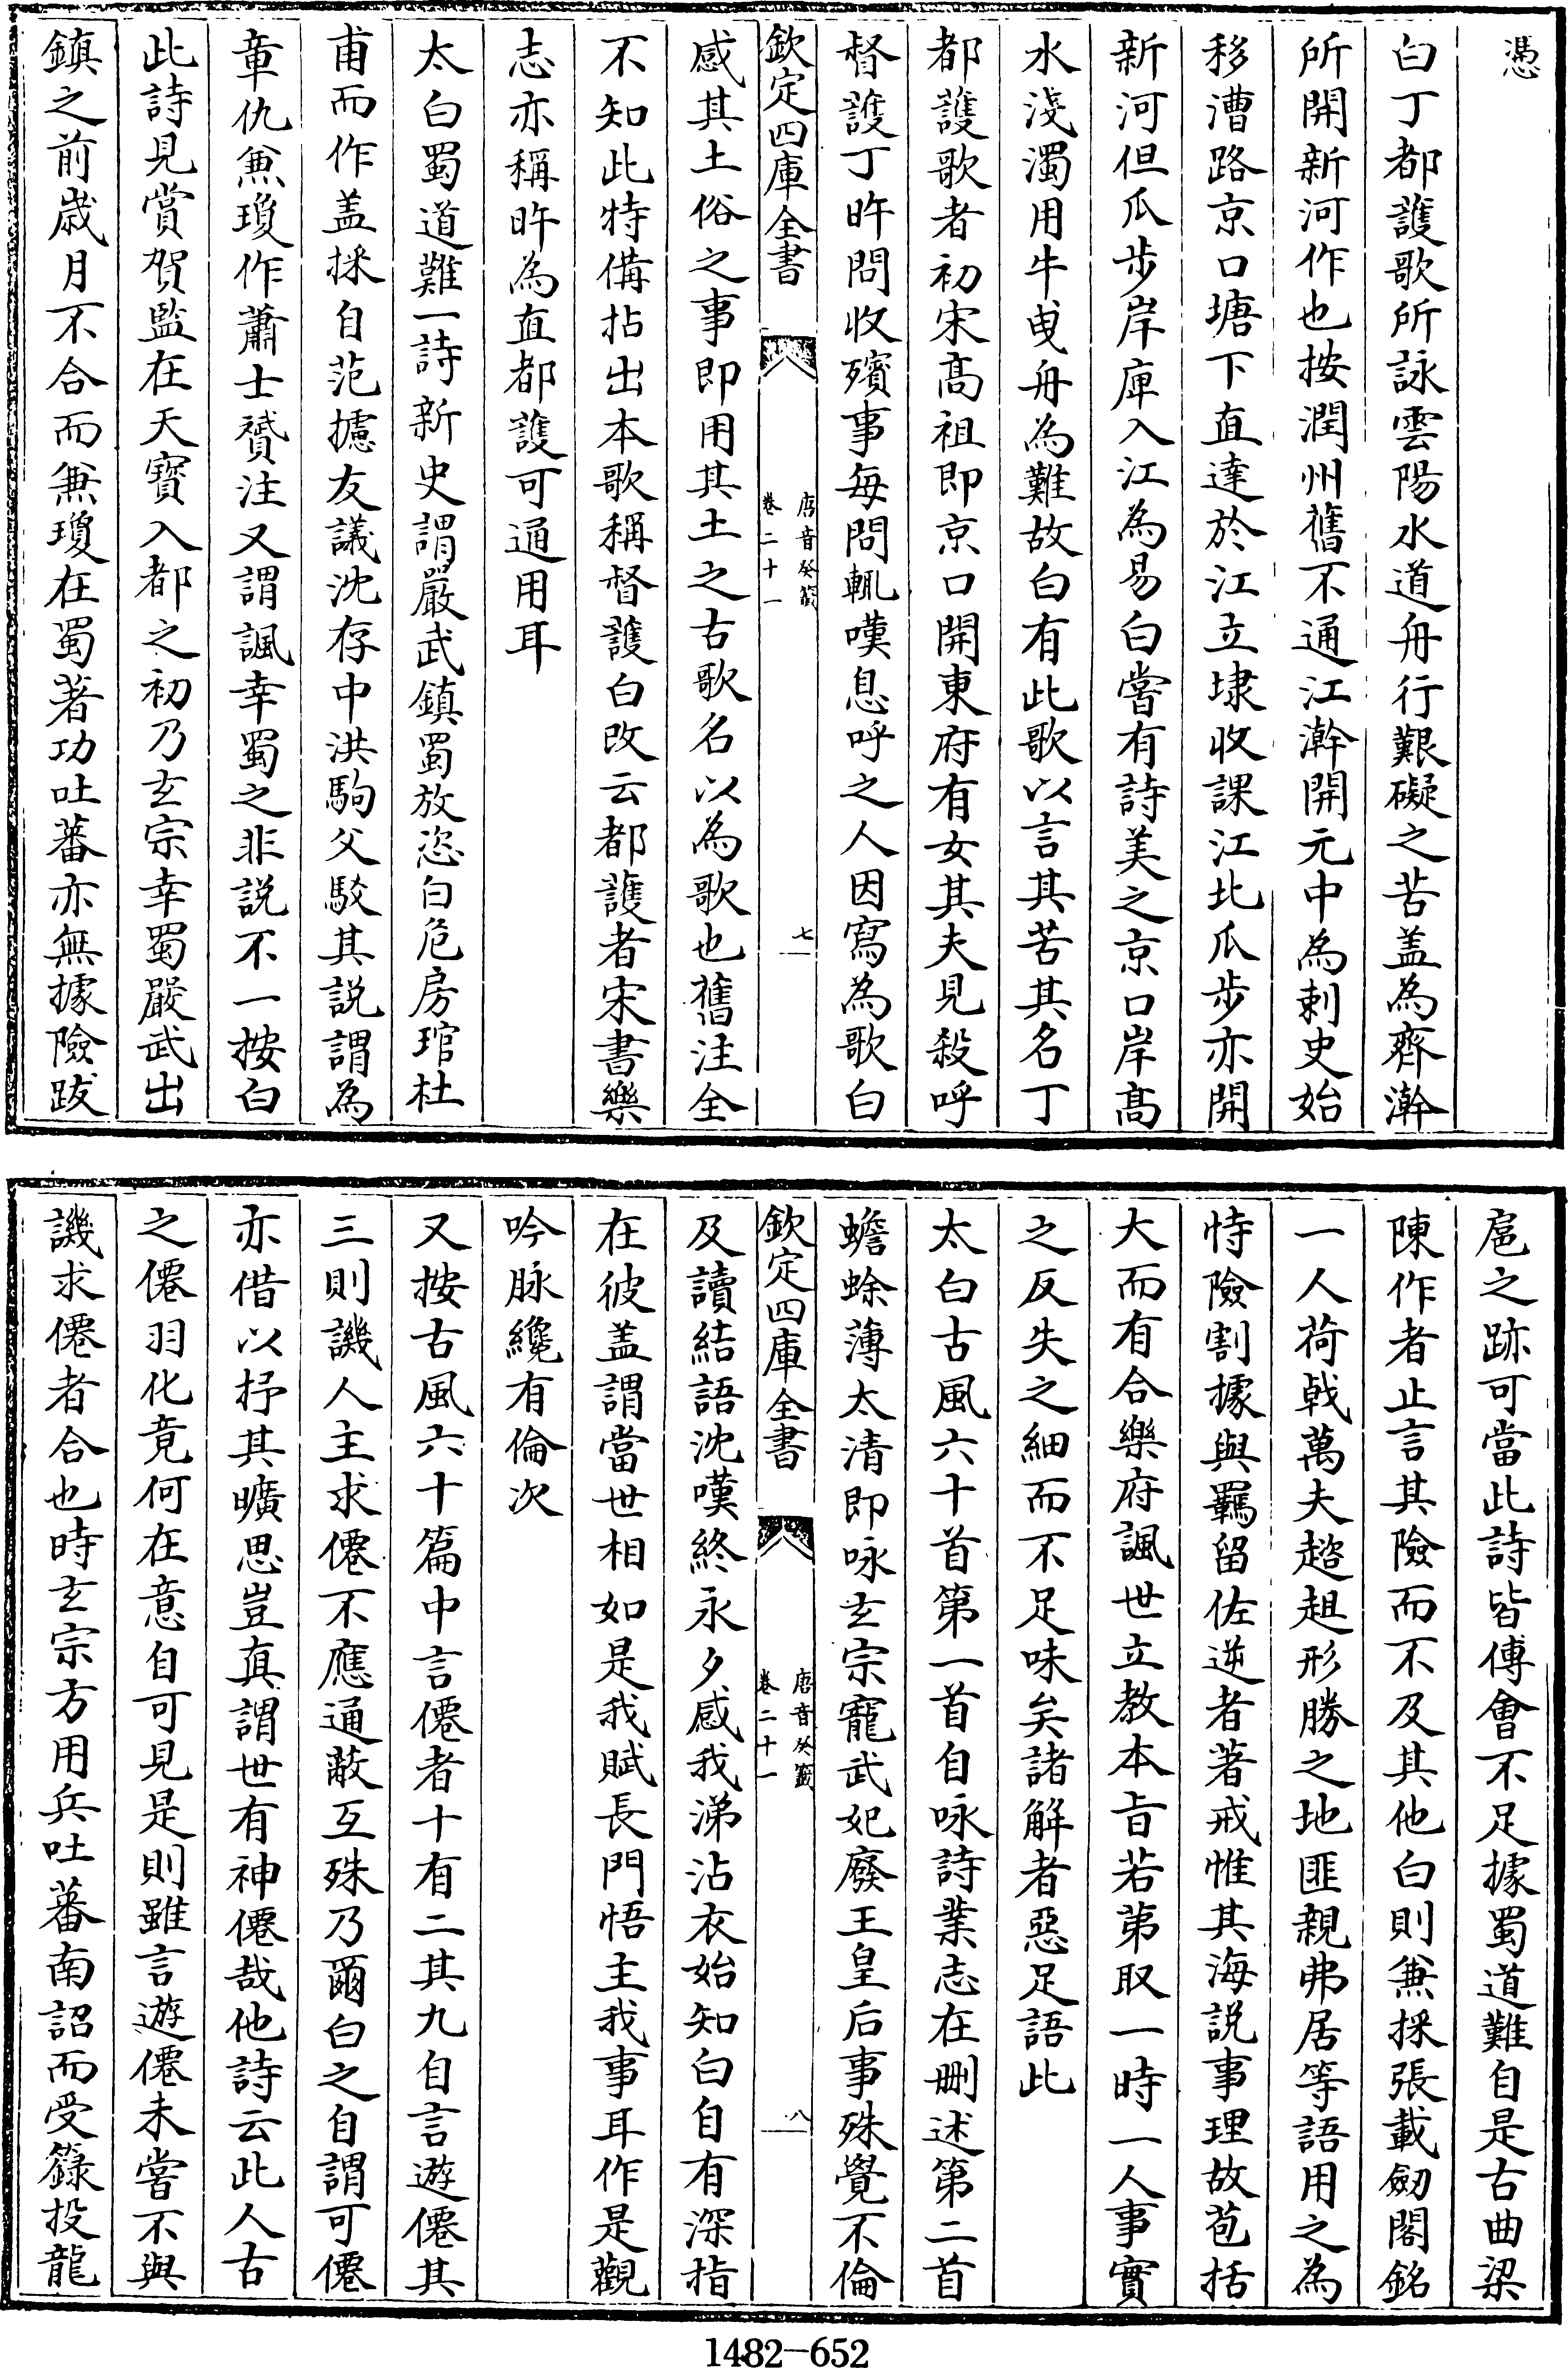 憑
白丁都護歌所詠雲陽水道舟行艱礙之苦盖為齊澣
所開新河作也按潤州舊不通江澣開元中為刺史始
移漕路京口塘下直達於江立埭收課江北瓜步亦開
新河但瓜步岸庫入江為易白嘗有詩美之京口岸高
水淺濁用牛曳舟為難故白有此歌以言其苦其名丁
都護歌者初宋高祖即京口開東府有女其夫見殺呼
督護丁旿問收殯事每問輒嘆息呼之人因寫為歌白
欽定四庫全書
唐音癸籤
卷二十一
七
感其土俗之事即用其土之古歌名以為歌也舊注全
不知此特備拈出本歌稱督護白改云都護者宋書樂
志亦稱旿為直都護可通用耳
太白蜀道難一詩新史謂嚴武鎮蜀放恣白危房琯杜
甫而作盖採自范攄友議沈存中洪駒父駁其説謂為
章仇兼瓊作蕭士贇注又謂諷幸蜀之非説不一按白
此詩見賞賀監在天寶入都之初乃玄宗幸蜀嚴武出
鎮之前歲月不合而兼瓊在蜀著功吐蕃亦無據險跋
扈之跡可當此詩皆傅會不足據蜀道難自是古曲梁
陳作者止言其險而不及其他白則兼採張載劒閣銘
一人荷戟萬夫趑趄形勝之地匪親弗居等語用之為
恃險割據與羈留佐逆者著戒惟其海説事理故苞括
大而有合樂府諷世立教本旨若第取一時一人事實
之反失之細而不足味矣諸解者惡足語此
太白古風六十首第一首自咏詩業志在删述第二首
蟾蜍薄太清即咏玄宗寵武妃廢王皇后事殊覺不倫
欽定四庫全書
唐音癸籤
卷二十一
八
及讀結語沈嘆終永夕感我涕沾衣始知白自有深指
在彼盖謂當世相如是我賦長門悟主我事耳作是觀
吟脉纔有倫次
又按古風六十篇中言僊者十有二其九自言遊僊其
三則譏人主求僊不應通蔽互殊乃爾白之自謂可僊
亦借以抒其曠思豈真謂世有神僊哉他詩云此人古
之僊羽化竟何在意自可見是則雖言遊僊未嘗不與
譏求僊者合也時玄宗方用兵吐蕃南詔而受籙投龍
1482-652